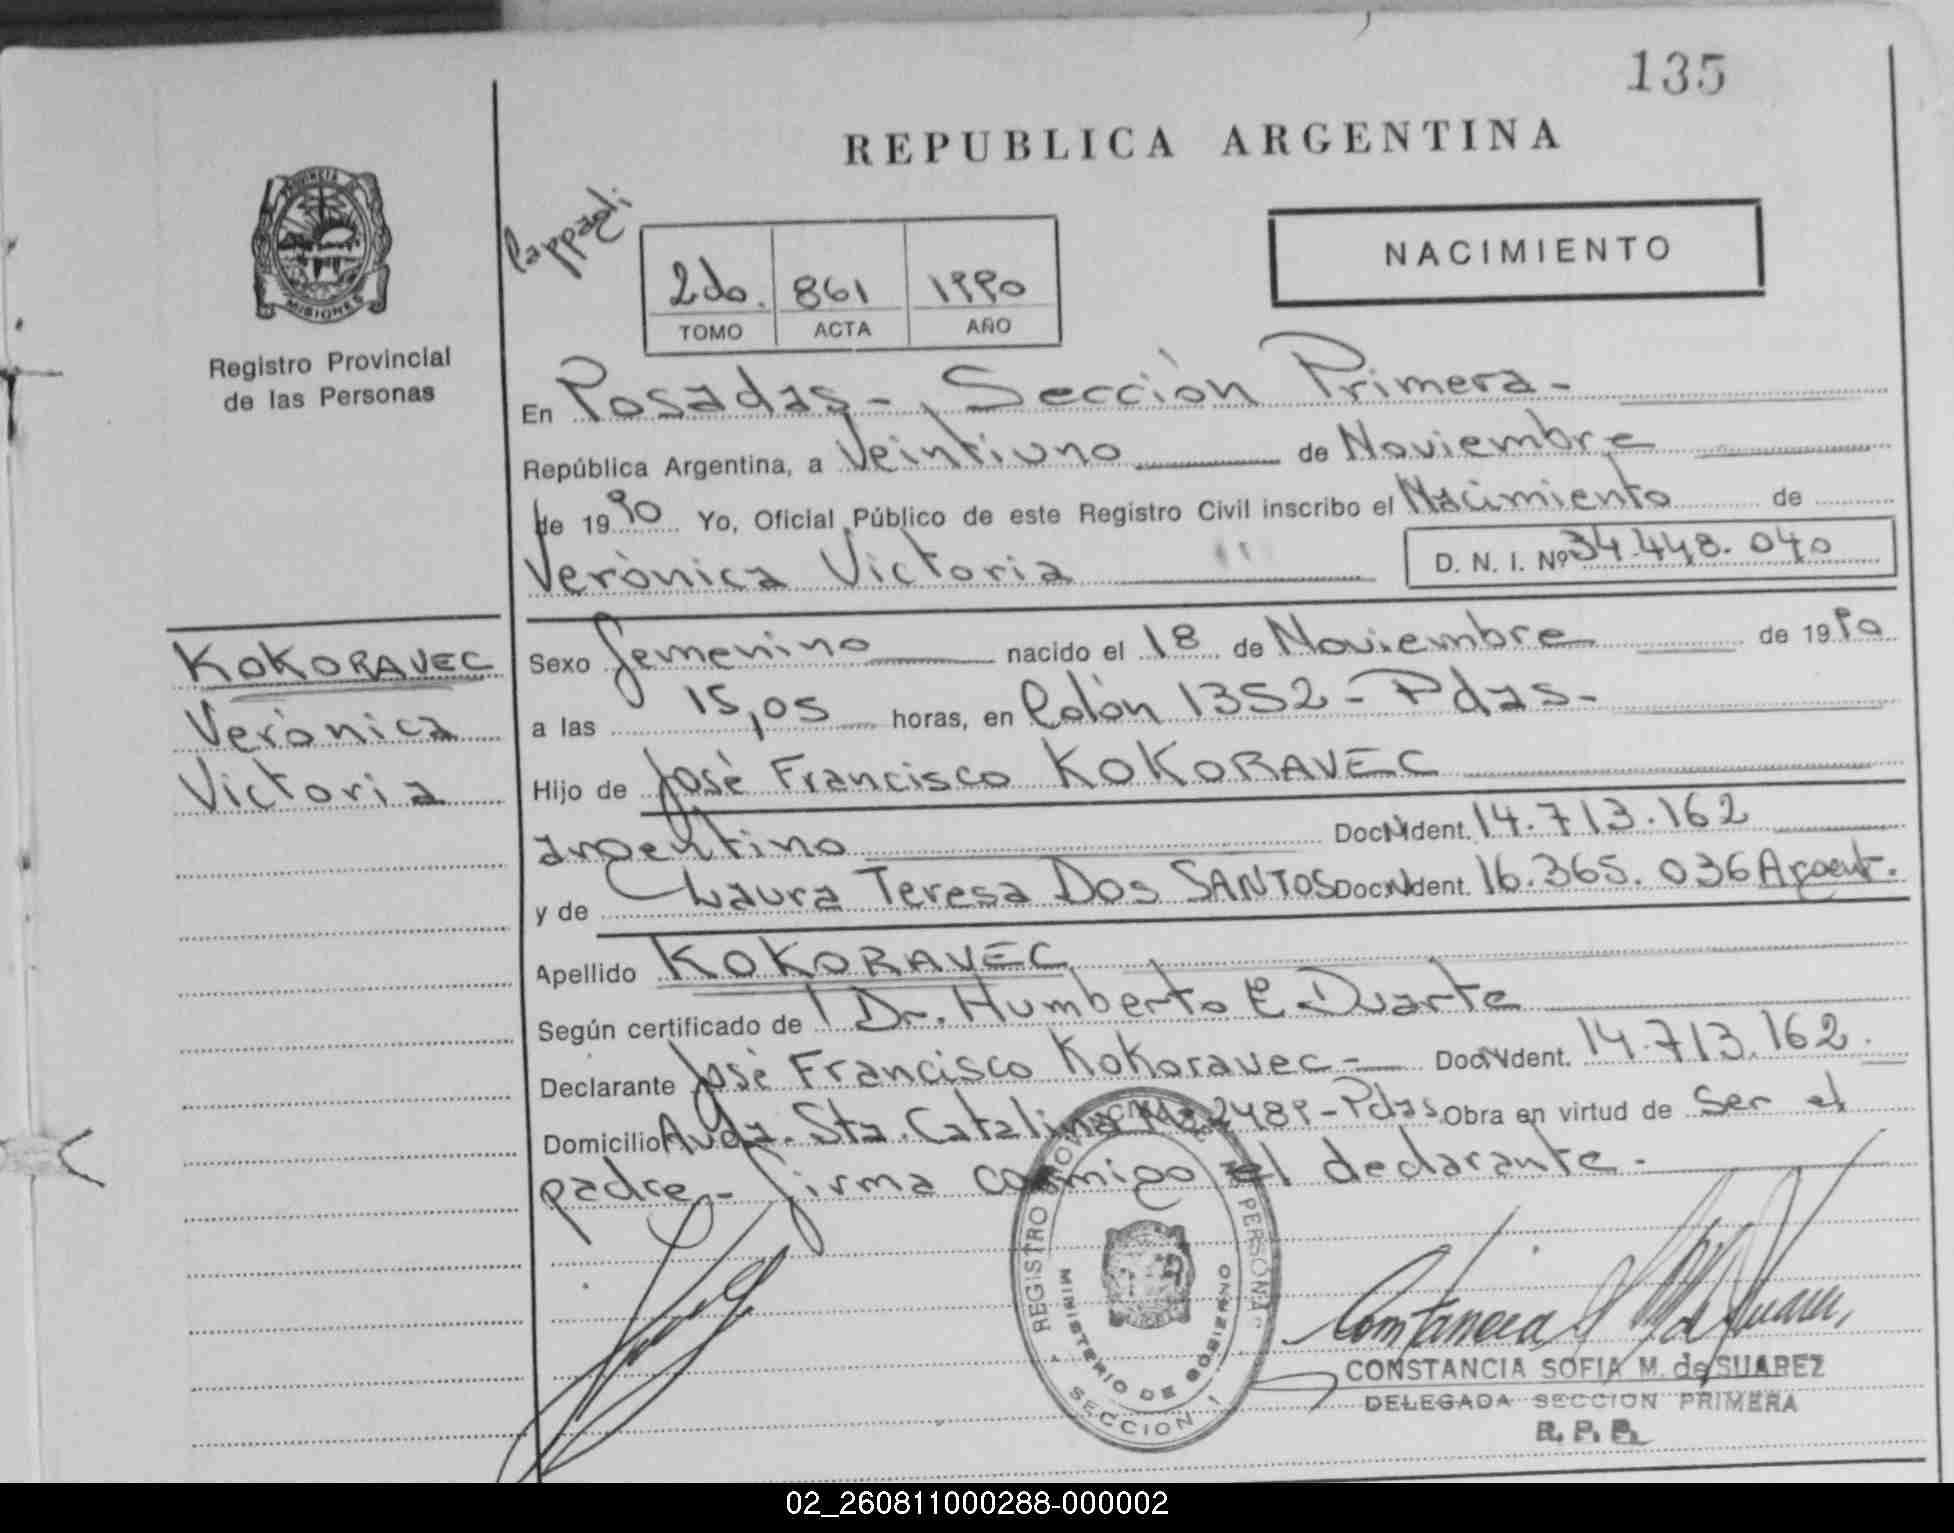 135
REPUBLICA ARGENTINA
PROVINCIA DE
MISIONES
Registro Provincial
de las Personas
2do. 861 1990
TOMO ACTA AÑO
NACIMIENTO
En Posadas-, Sección Primera-
República Argentina, a Veintiuno de Noviembre
de 1990 Yo, Oficial Público de este Registro Civil inscribo el Nacimiento de
Verònica Victoria D. N. I. Nº 34.448.040
KOKORAVEC
Verònica
Victoria
Sexo femenino nacido el 18 de Noviembre de 1990
a las 15,05 horas, en Colón 1352 - Pdas-
Hijo de José Francisco KOKORAVEC
argentino Doc. Ident. 14.713.162
y de Laura Teresa Dos SANTOS Doc. Ident. 16.365.036 Argent.
Apellido KOKORAVEC
Según certificado de Dr. Humberto E Duarte
Declarante José Francisco Kokoravec - Doc. Ident. 14.713.162.
Domicilio Avda. Sta. Catalina Nº 2489 - Pdas Obra en virtud de ser el
padre - firma conmigo el declarante -
REGISTRO PROVINCIAL DE LAS PERSONAS
MINISTERIO DE GOBIERNO
SECCION 1
CONSTANCIA SOFIA M. de SUAREZ
DELEGADA SECCION PRIMERA
R. P. P.
02_260811000288-000002